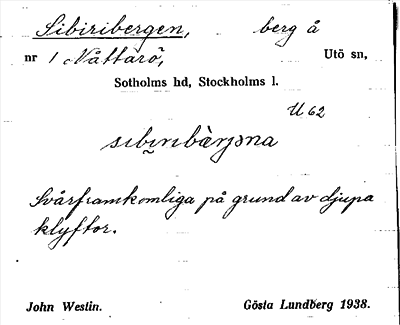 Sibiribergen, berg å
nr 1 Nåttarö, Utö sn,
Sotholms hd, Stockholms l.
U 62
Svårframkomliga på grund av djupa
klyftor.
John Westin. Gösta Lundberg 1938.